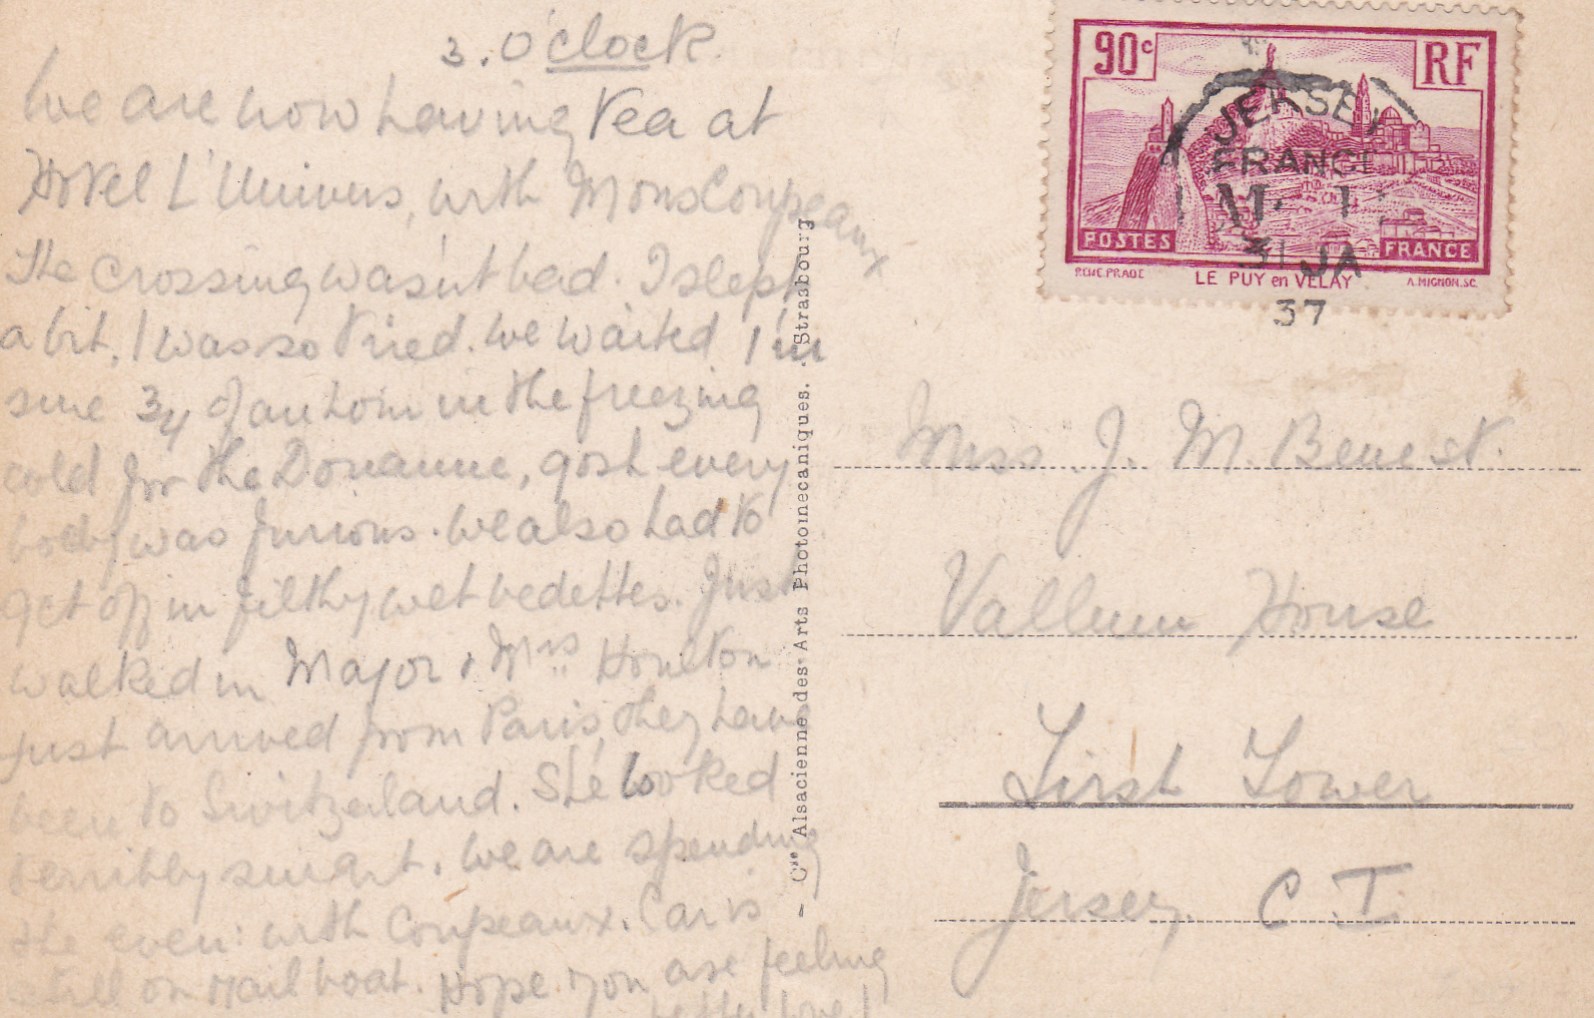 3. O'clock.
We are now having Tea at
Hotel L'Univers, with Mons Coupeaux
The crossing wasn't bad I slept
a bit, I was so tired. We waited I'm
sure 3/4 of an hour in the freezing
cold for the Douanne, gosh every
body was furious. We also had to
get off in filthy wet vedettes. Just
walked in Major & Mrs Houlton
just arrived from Paris, they have
been to Switzerland. She looked
terribly smart. We are spending
the even: with Coupeaux. Car is
still on Mail boat. Hope you are feeling
better love!
- Cie Alsacienne des Arts Photomécaniques. - Strasbourg
90c RF
POSTES FRANCE
RENE.PRADE LE PUY en VELAY A.MIGNON.SC.
JERSEY
FRANCE
M. 1
31 JA
37
Miss J. M. Benest.
Vallum House
First Tower
Jersey. C. I.